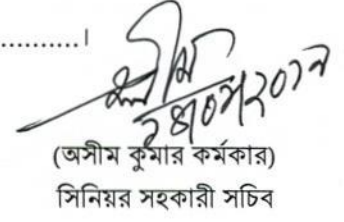 ...........।
(অসীম কুমার কর্মকার)
সিনিয়র সহকারী সচিব